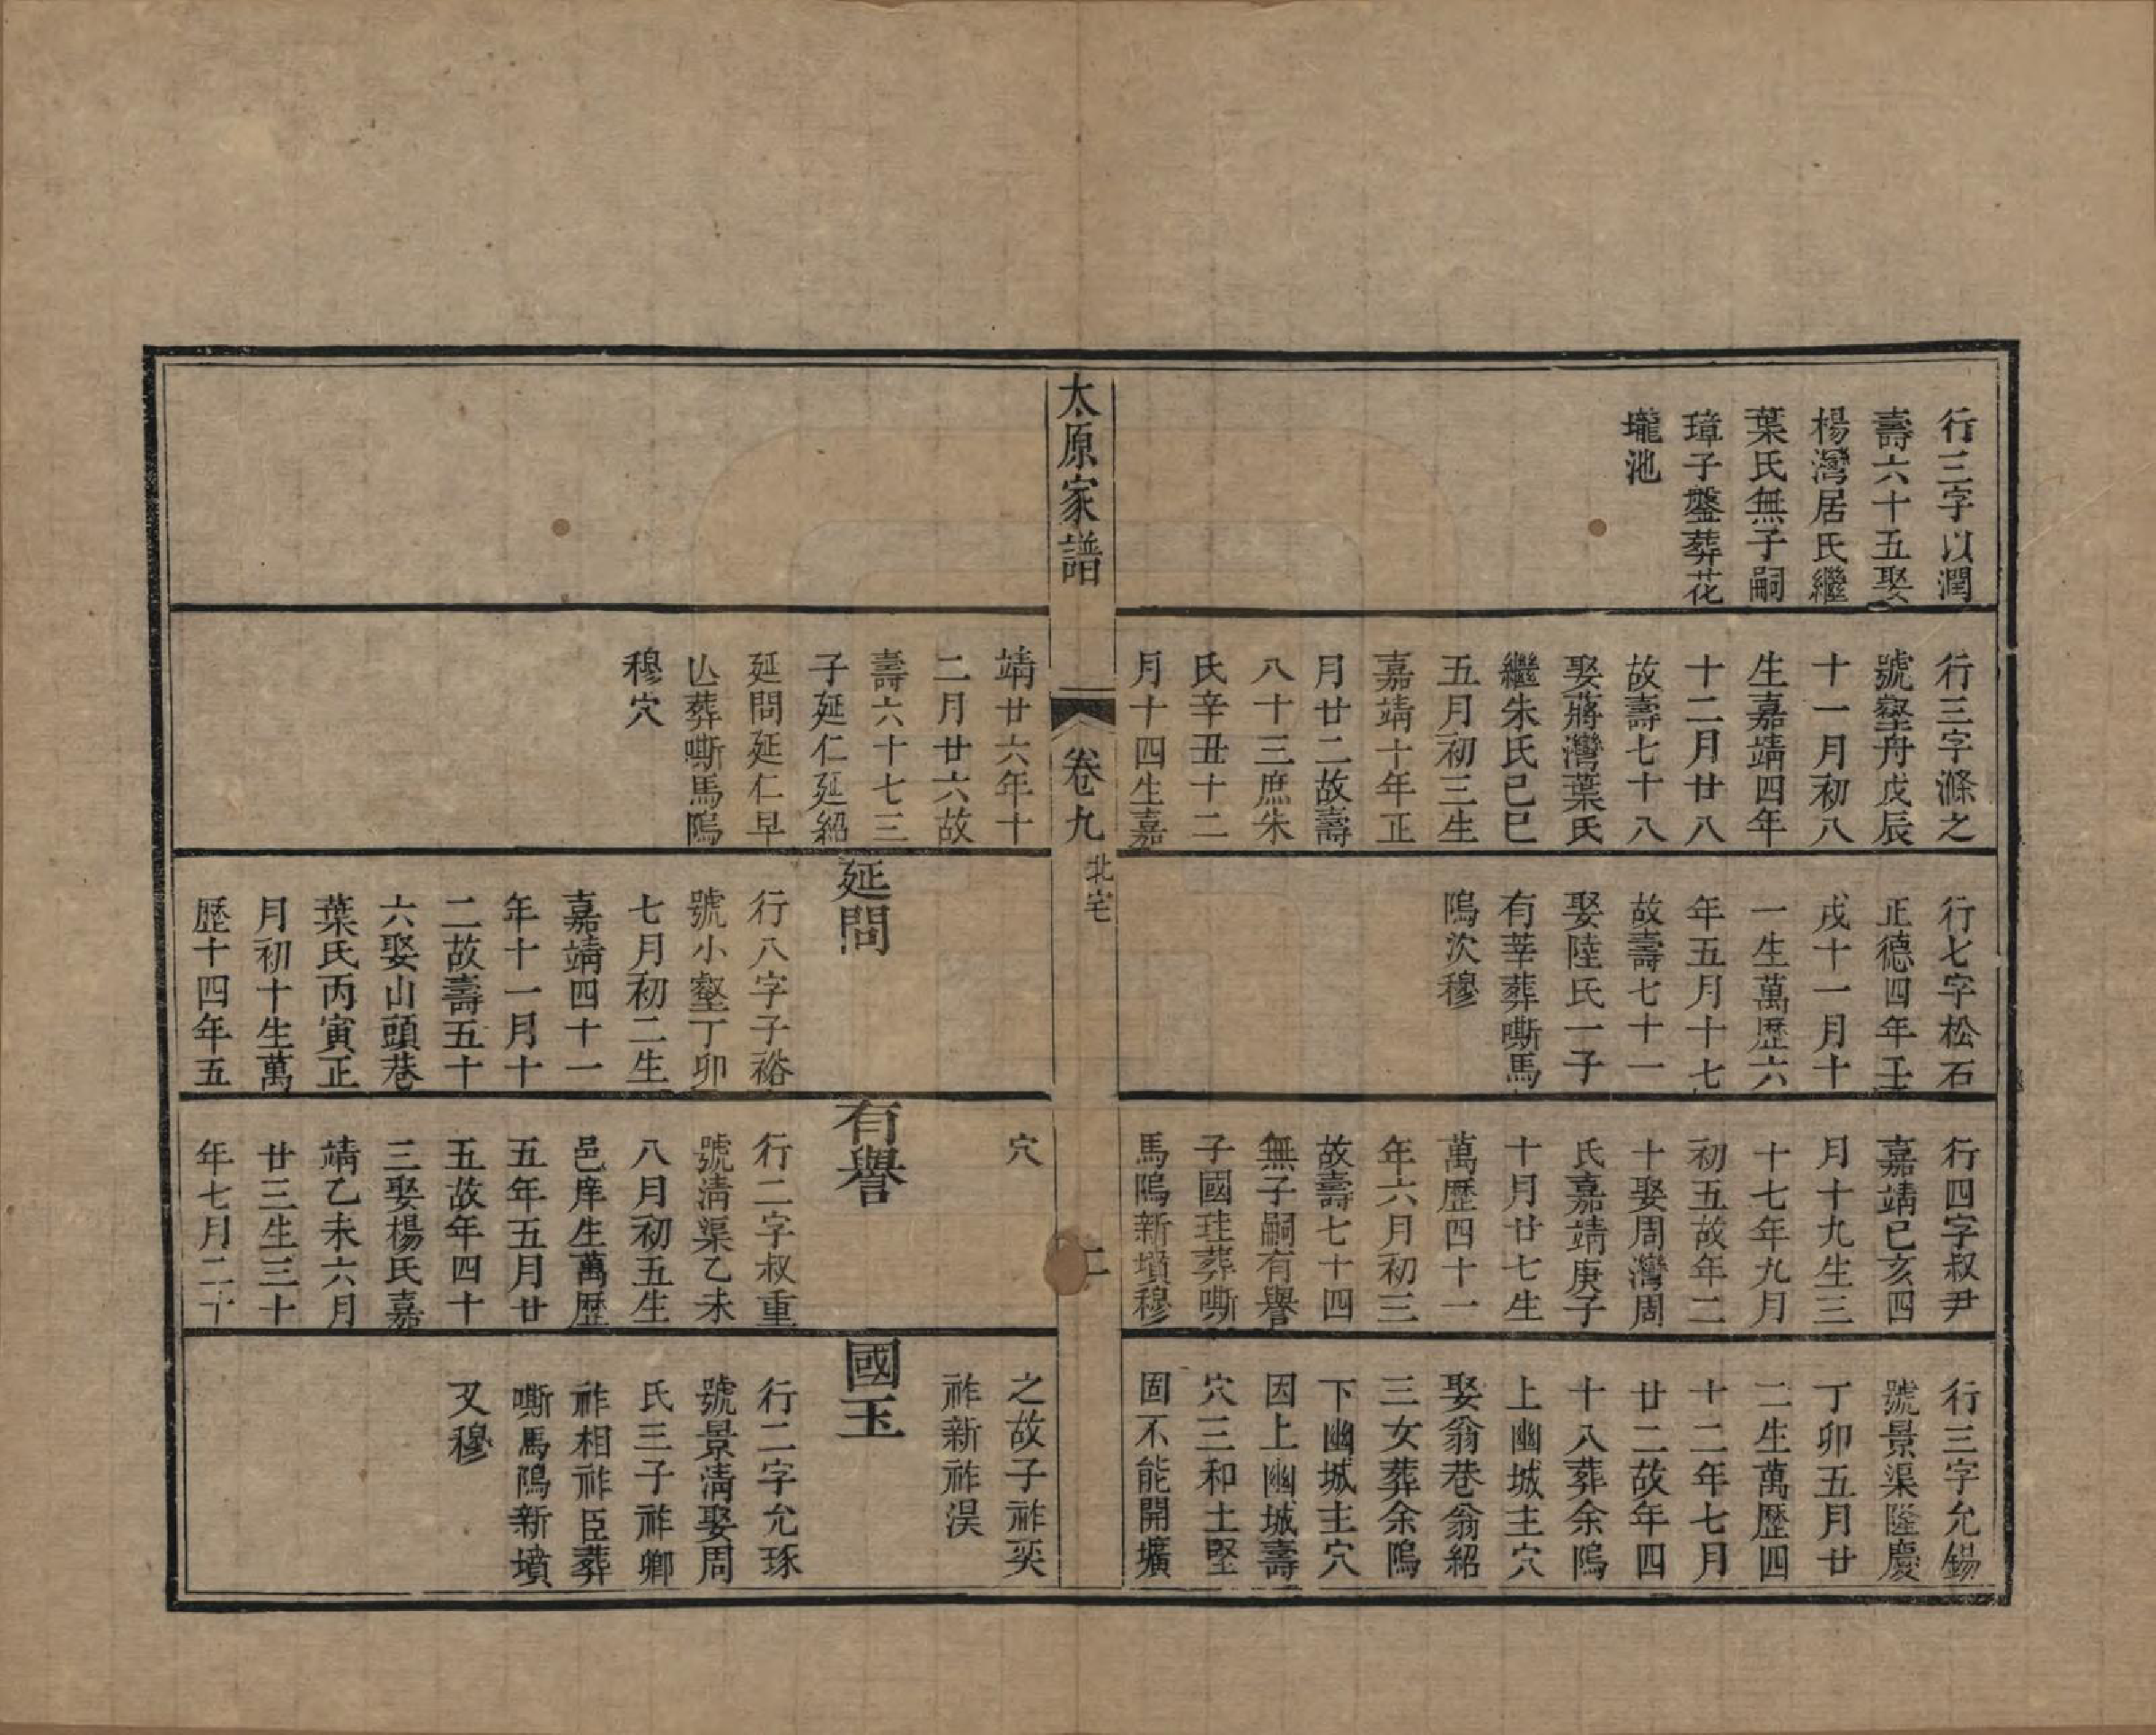 行三字以潤
壽六十五娶
楊灣居氏繼
葉氏無子嗣
璋子盤葬花
壠池
行三字滌之
號壑舟戊辰
十一月初八
生嘉靖四年
十二月廿八
故壽七十八
娶蔣灣葉氏
繼朱氏己巳
五月初三生
嘉靖十年正
月廿二故壽
八十三庶朱
氏辛丑十二
月十四生嘉
行七字松石
正德四年壬
戌十一月十
一生萬歷六
年五月十七
故壽七十一
娶陸氏一子
有莘葬嘶馬
隝次穆
行四字叔尹
嘉靖己亥四
月十九生三
十七年九月
初五故年二
十娶周灣周
氏嘉靖庚子
十月廿七生
萬歷四十一
年六月初三
故壽七十四
無子嗣有譽
子國珪葬嘶
馬隝新墳穆
行三字允錫
號景渠隆慶
丁卯五月廿
二生萬歷四
十二年七月
廿二故年四
十八葬余隝
上幽城主穴
娶翁巷翁紹
三女葬余隝
下幽城主穴
因上幽城壽
穴三和土堅
固不能開壙
太原家譜
卷九
北宅
二
靖廿六年十
二月廿六故
壽六十七三
子延仁延紹
延問延仁早
亾葬嘶馬隝
穆穴
延問
行八字子裕
號小壑丁卯
七月初二生
嘉靖四十一
年十一月十
二故壽五十
六娶山頭巷
葉氏丙寅正
月初十生萬
歷十四年五
穴
有譽
行二字叔重
號清渠乙未
八月初五生
邑庠生萬歷
五年五月廿
五故年四十
三娶楊氏嘉
靖乙未六月
廿三生三十
年七月二十
之故子祚奕
祚新祚淏
國玉
行二字允琢
號景清娶周
氏三子祚卿
祚相祚臣葬
嘶馬隝新墳
又穆